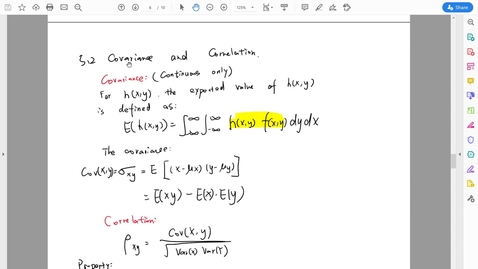 6 / 10
125%
5.2 Covariance and Correlation.
Covariance: (Continuous only)
For h(x,y). the expected value of h(x,y)
is defined as:
E(h(x,y)) = ∫_{-∞}^{∞} ∫_{-∞}^{∞} h(x,y) f(x,y) dy dx
The covariance:
Cov(X,Y) = σ_xy = E [(X-μx)(y-μy)]
= E(xy) - E(x)·E(y)
Correlation:
ρ_xy = Cov(X,y) / √Var(x) Var(Y)
Property: